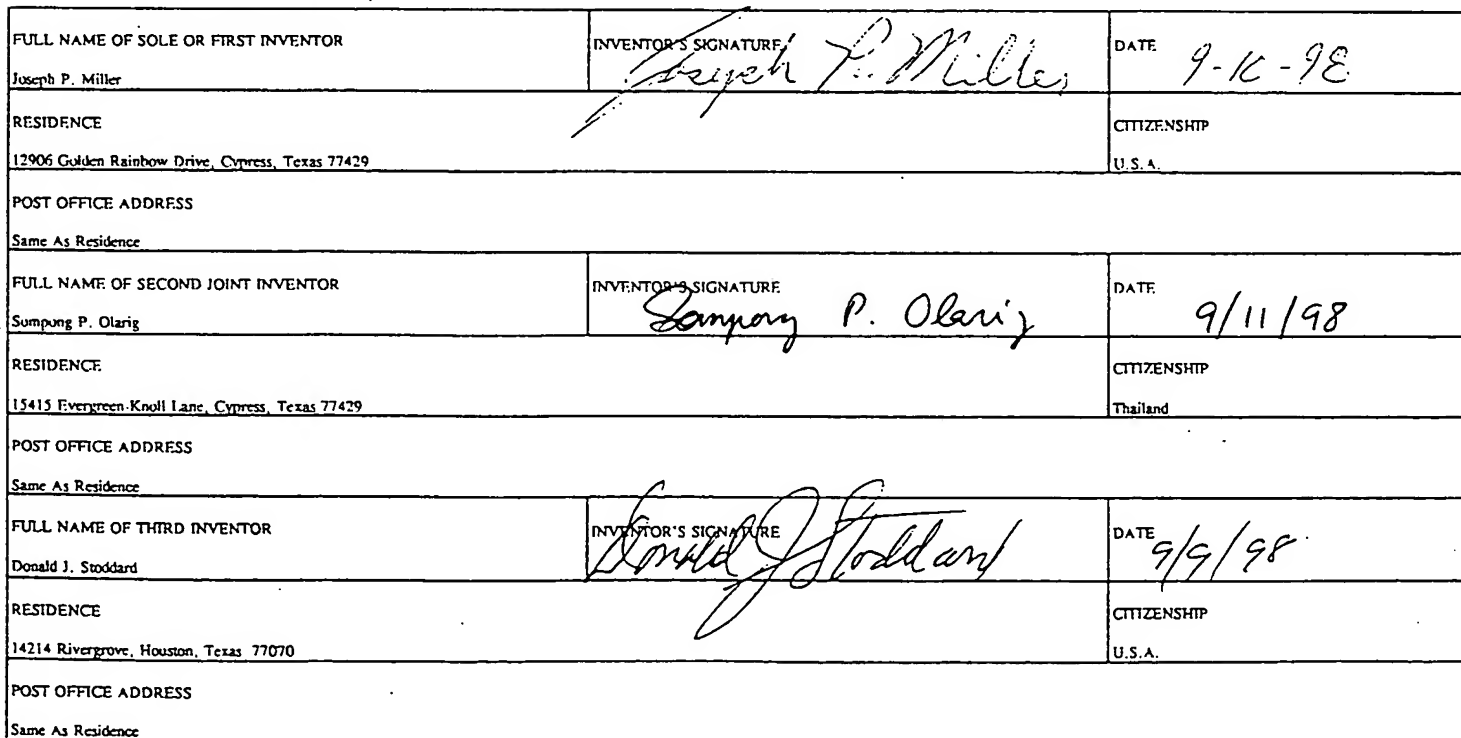 FULL NAME OF SOLE OR FIRST INVENTOR
Joseph P. Miller
INVENTOR'S SIGNATURE
Joseph P. Miller
DATE 9-10-98
RESIDENCE
12906 Golden Rainbow Drive, Cypress, Texas 77429
CITIZENSHIP
U.S.A.
POST OFFICE ADDRESS
Same As Residence
FULL NAME OF SECOND JOINT INVENTOR
Sompong P. Olarig
INVENTOR'S SIGNATURE
Sompong P. Olarig
DATE 9/11/98
RESIDENCE
15415 Evergreen Knoll Lane, Cypress, Texas 77429
CITIZENSHIP
Thailand
POST OFFICE ADDRESS
Same As Residence
FULL NAME OF THIRD INVENTOR
Donald J. Stoddard
INVENTOR'S SIGNATURE
Donald J Stoddard
DATE 9/9/98
RESIDENCE
14214 Rivergrove, Houston, Texas 77070
CITIZENSHIP
U.S.A.
POST OFFICE ADDRESS
Same As Residence